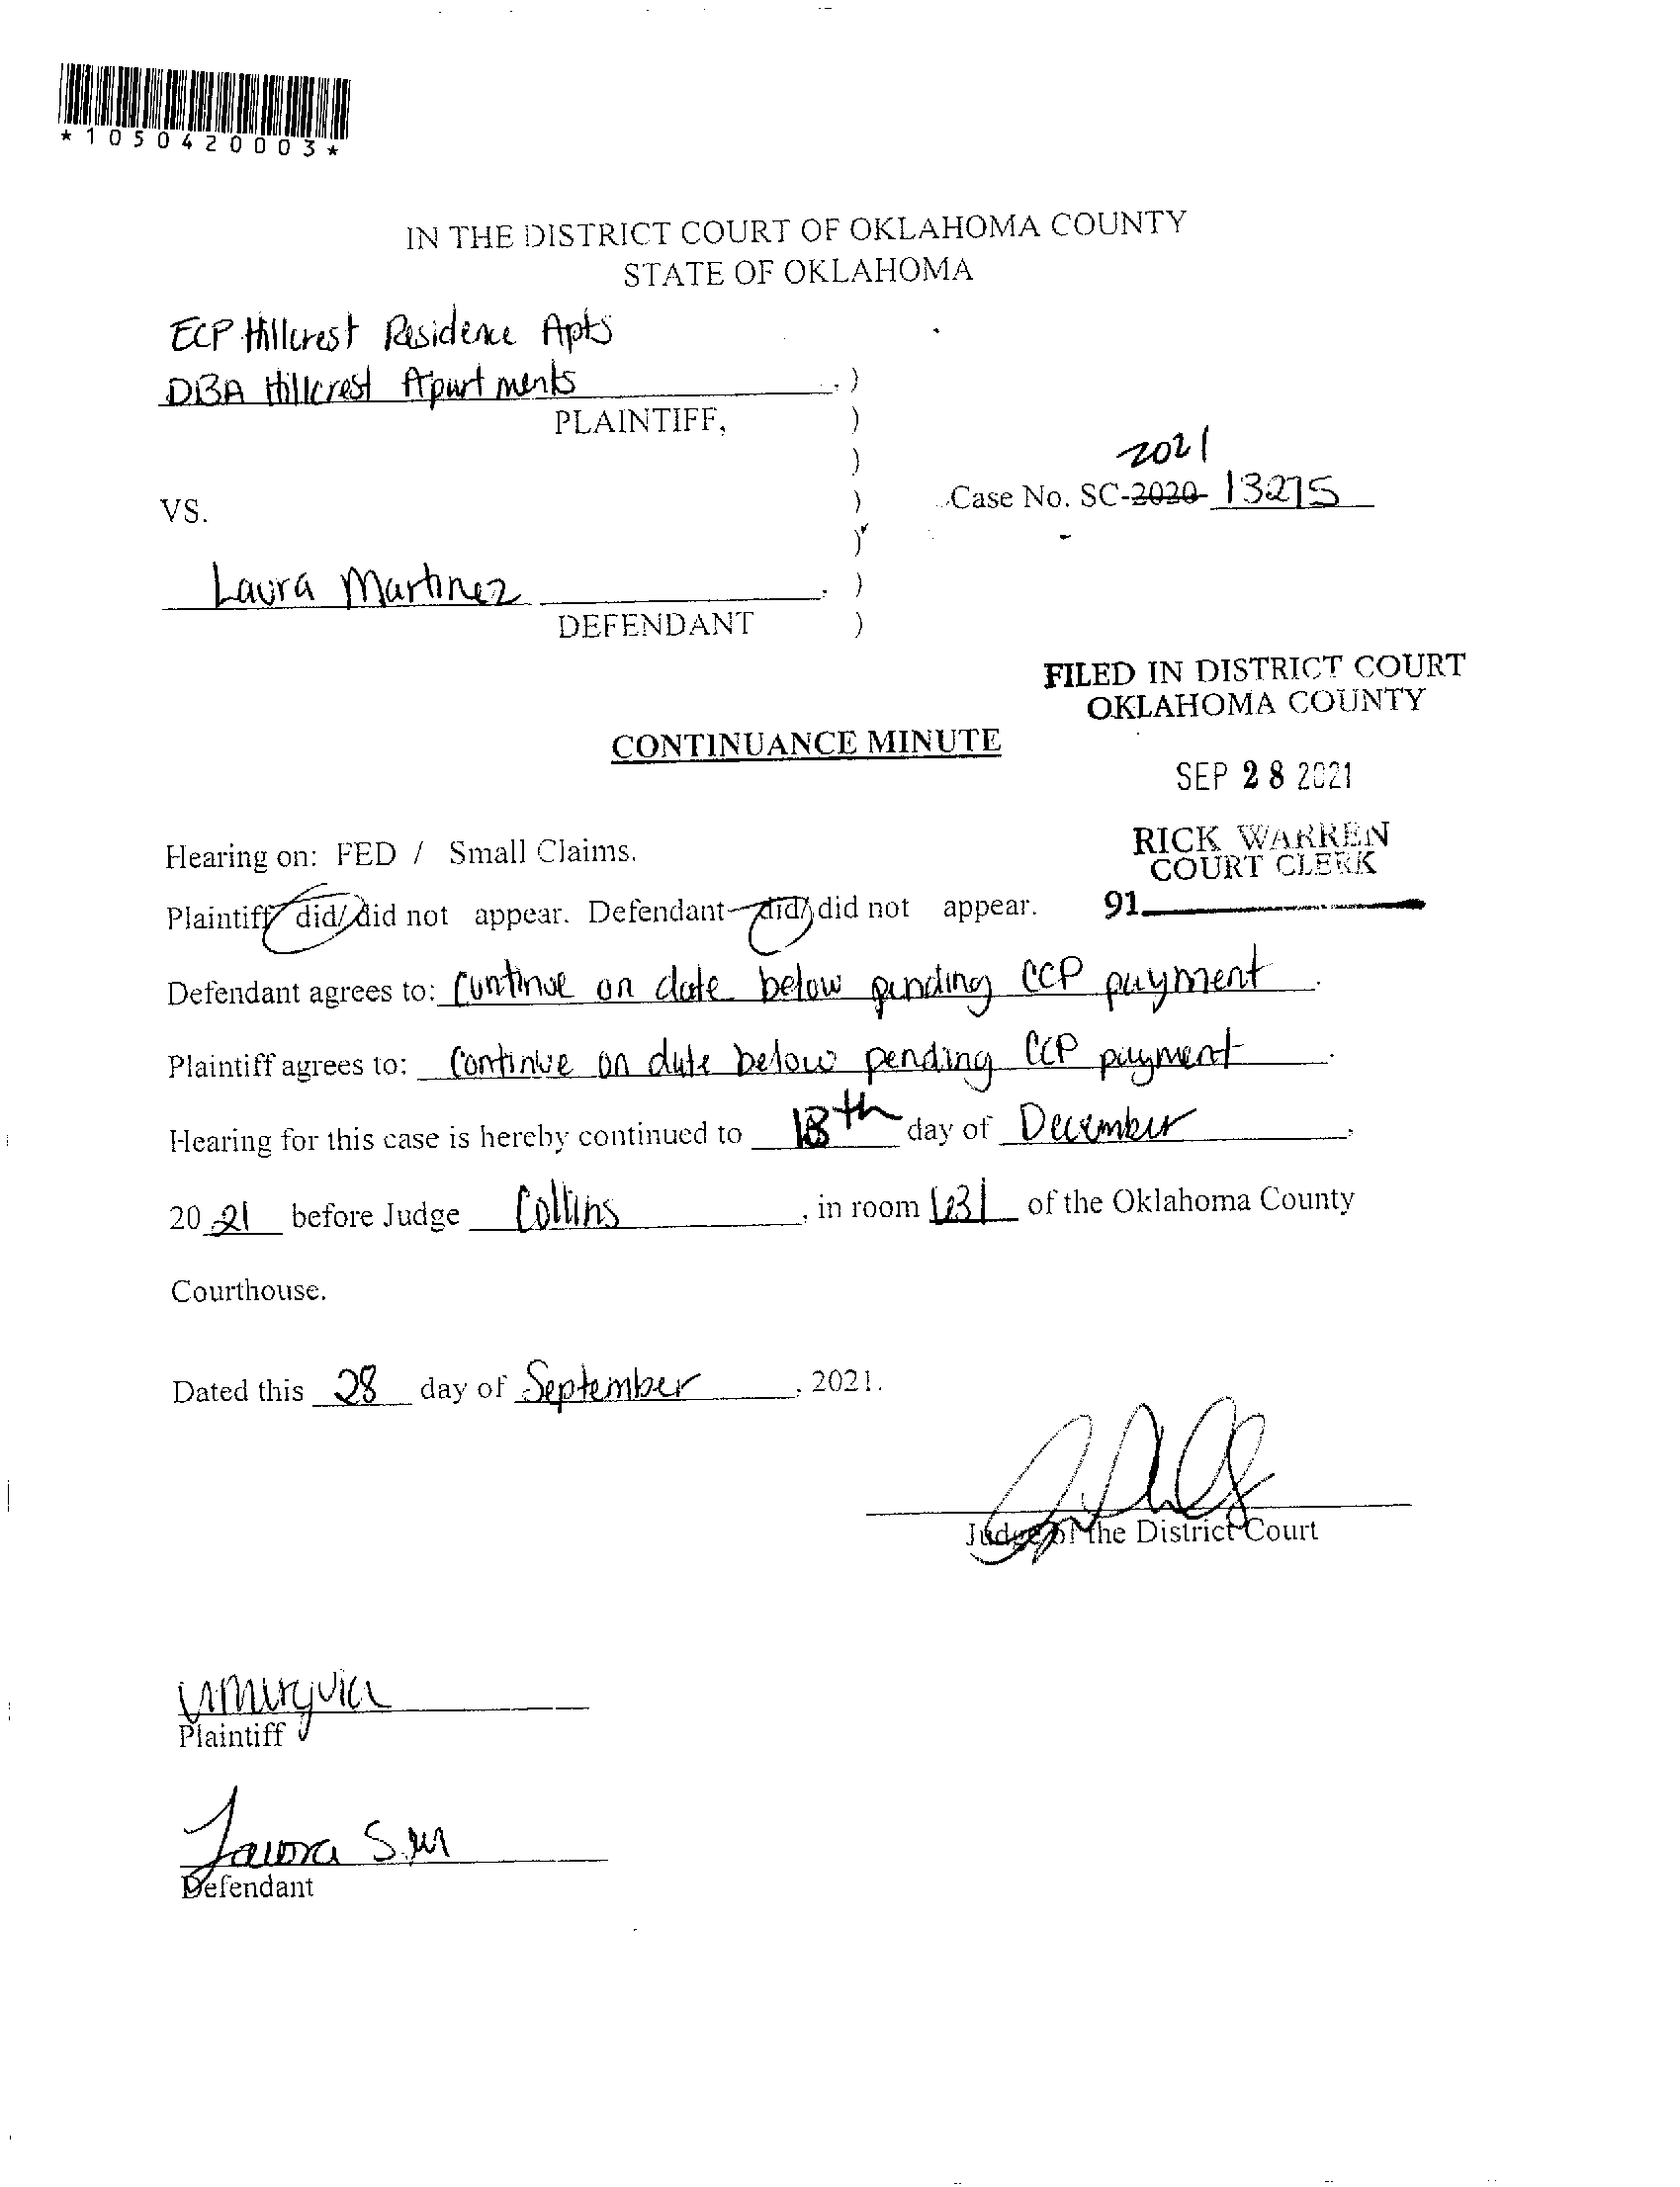 *1050420003*
IN THE DISTRICT COURT OF OKLAHOMA COUNTY
STATE OF OKLAHOMA
ECP Hillcrest Residence Apts
DBA Hillcrest Apartments, )
PLAINTIFF, )
)
2021
VS. ) Case No. SC-2020-13275
)
Laura Martinez, )
DEFENDANT )
FILED IN DISTRICT COURT
OKLAHOMA COUNTY
CONTINUANCE MINUTE
SEP 28 2021
RICK WARREN
COURT CLERK
91
Hearing on: FED / Small Claims.
Plaintiff did/did not appear. Defendant did/did not appear.
Defendant agrees to: continue on date below pending CCP payment.
Plaintiff agrees to: Continue on date below pending CCP payment.
Hearing for this case is hereby continued to th day of December,
2021 before Judge Collins, in room of the Oklahoma County
Courthouse.
Dated this 28 day of September, 2021.
Judge of the District Court
Plaintiff
Laura S.M
Defendant